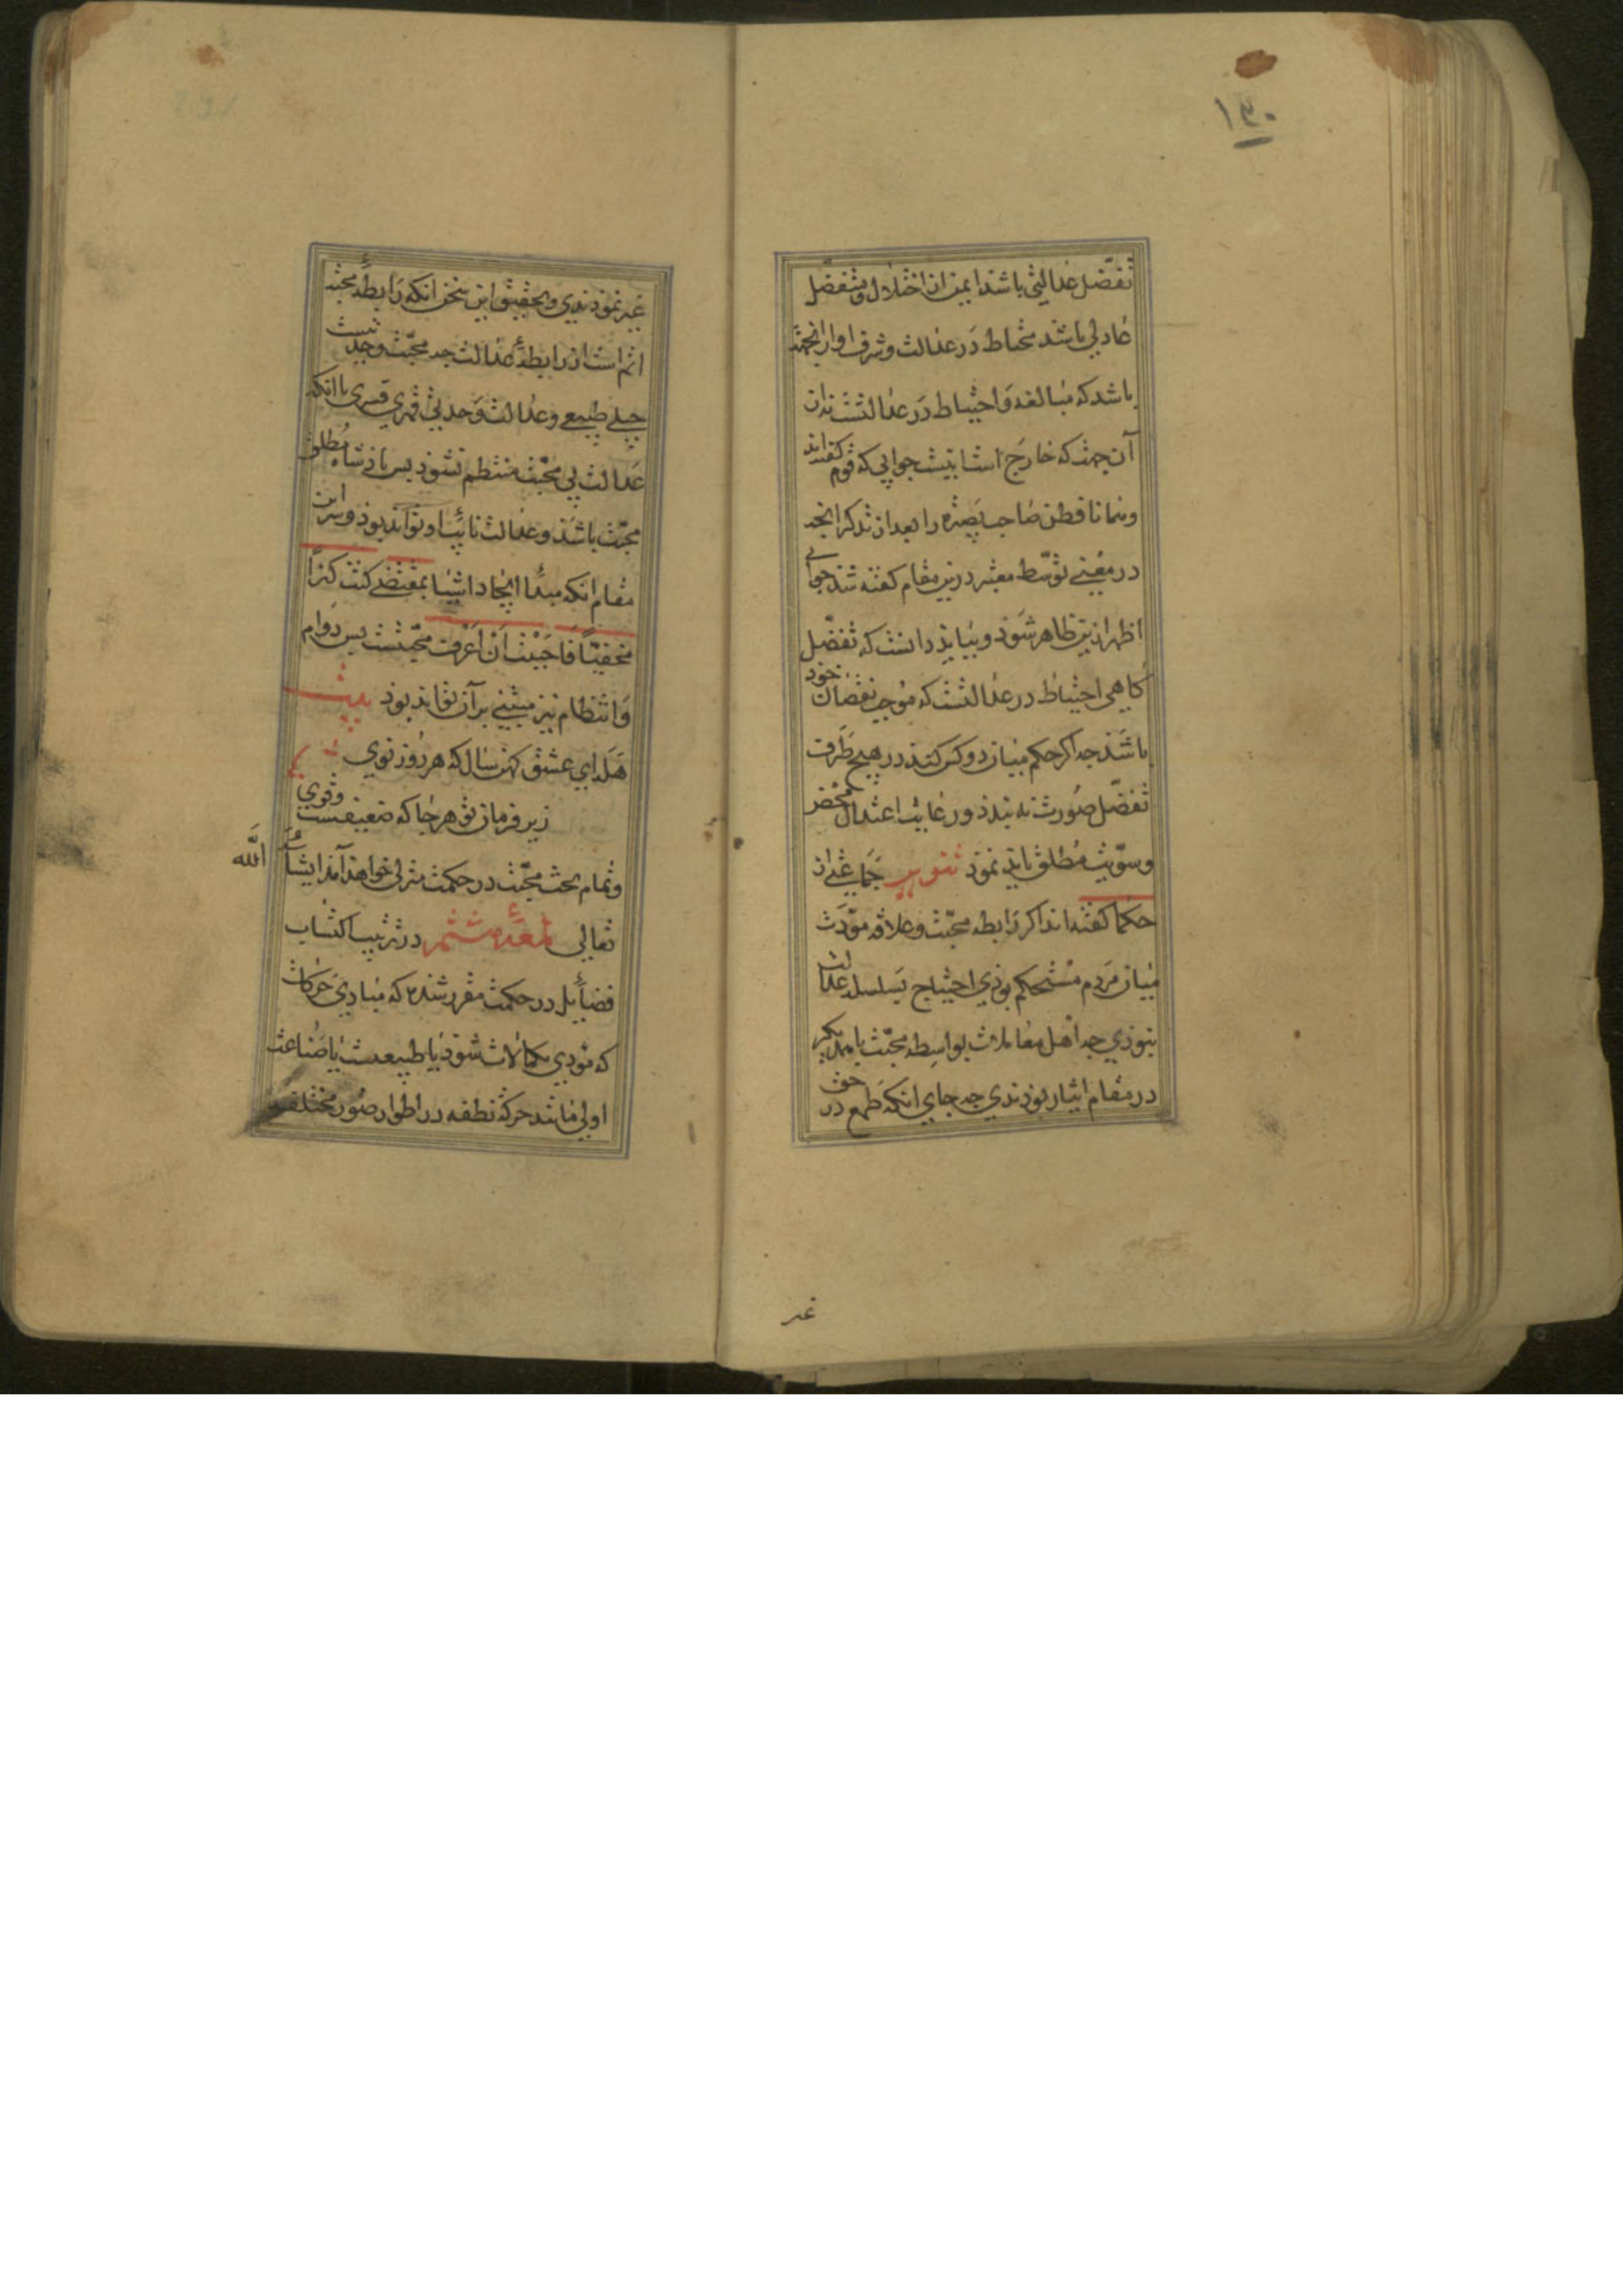 ۱۳۰
تفضّل عدالتی باشد ایمن از اختلال و متفضّل
عادلی باشد محتاط در عدالت و شرف او از انجهت
باشد که مبالغه و احتیاط در عدالتست نه از
آن جهت که خارج است اینست جوابی که قوم گفته‌اند
و همانا فطن صاحب بصیره را بعد از تذکر انچه
در معنی توسّط معتبر درین مقام گفته شد جوابی
اظهر ازین ظاهر شود و بباید دانست که تفضّل
گاهی احتیاط در عدالتست که موجب نقصان خود
باشد چه اگر حکم میان دو کس کند در هیچ طرف
تفضّل صورت نه بندد و رعایت اعتدال محض
و سوّیت مطلق باید نمود تنویر جماعتی از
حکما گفته‌اند اگر رابطه محبّت و علاقه مودّت
میان مردم مستحکم بودی احتیاج بسلسله عدالت
نبودی چه اهل معاملات بواسطه محبّت با همدیگر
در مقام ایثار بودندی چه جای انکه طمع در حق
غیر
غیر نمودندی و تحقیق این سخن انکه رابطهٔ محبّت
اتم است از رابطهٔ عدالت چه محبّت وحدتیست
جبلی طبیعی و عدالت وحدتی قهری قسری با انکه
عدالت بی محبّت منتظم نشود پس پادشاه مطلق
محبّت باشد و عدالت نایب او تواند بود و سرّ این
مقام انکه مبدأ ایجاد اشیا بمقتضی کنت کنزًا
مخفیًّا فاحببت ان اعرف محبّتست پس دوام
و انتظام نیز مبتنی بر آن تواند بود بیت
هله ای عشق کهن سال که هر روز نوی
زیر فرمان تو هر جا که ضعیفست و قوی
و تمام بحث محبّت در حکمت منزلی خواهد آمد ان شاء الله
تعالی لمعهٔ هشتم در ترتیب اکتساب
فضایل در حکمت مقرر شده که مبادی حرکات
که مودی بکمالات شود یا طبیعتست یا صناعت
اولی مانند حرکة نطفه در اطوار صور مختلفه